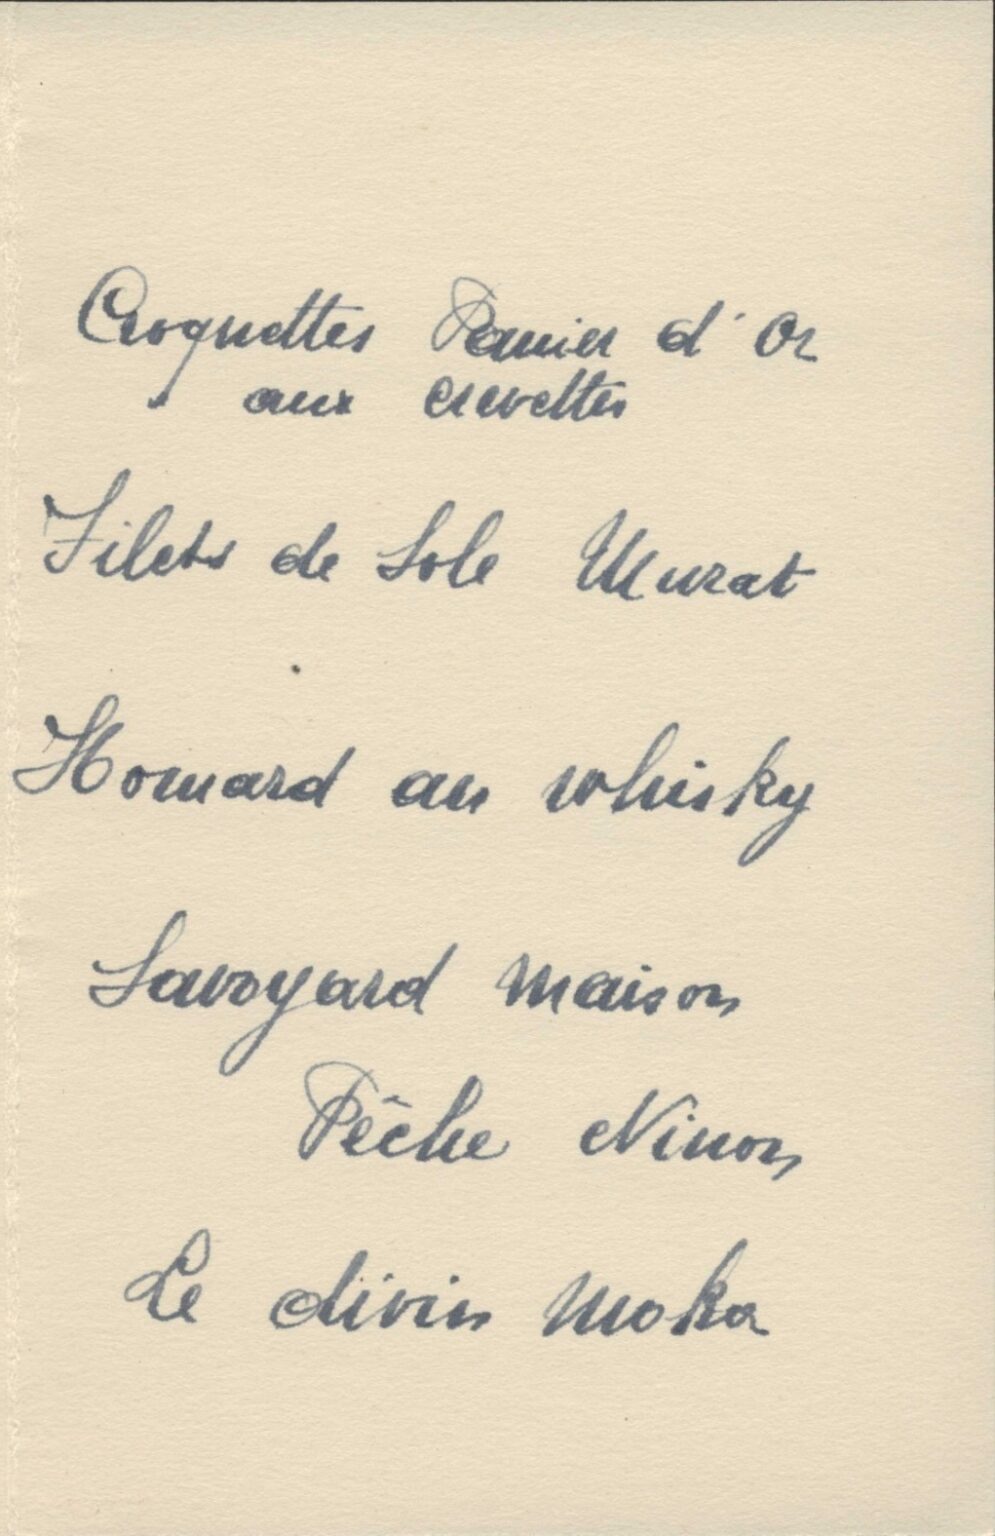 Croquettes Panier d'Or
aux crevettes
Filets de Sole Murat
Homard au whisky
Savoyard maison
Pêche Ninon
Le divin Moka